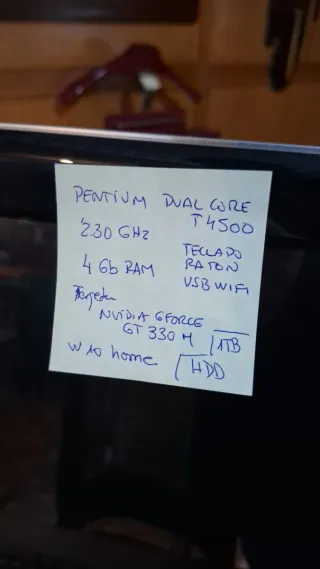 PENTIUM DUAL CORE
T4500
2.30 GHz
4 Gb RAM
TECLADO
RATON
USB WIFI
Tarjeta
NVIDIA GFORCE
GT 330 M
1TB
HDD
W 10 home